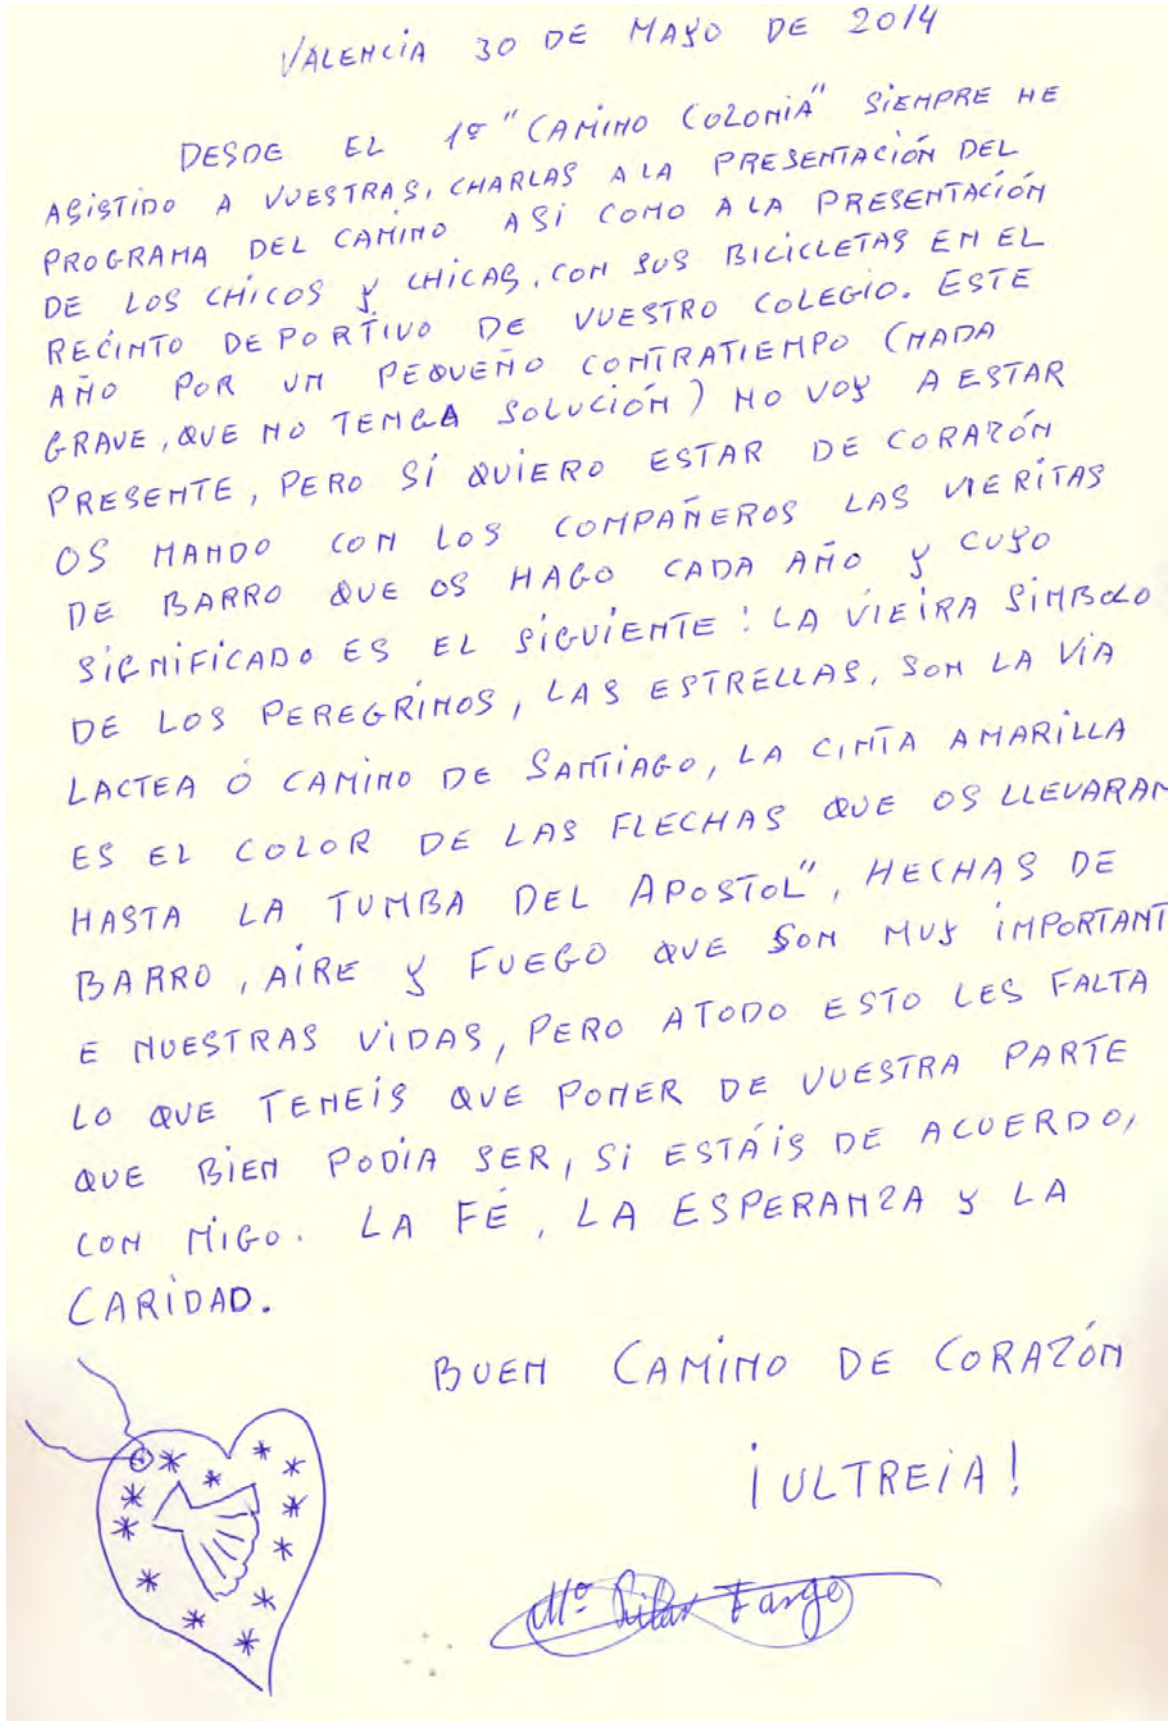 VALENCIA 30 DE MAYO DE 2014
DESDE EL 1º "CAMINO COLONIA" SIEMPRE HE
ASISTIDO A VUESTRAS, CHARLAS A LA PRESENTACIÓN DEL
PROGRAMA DEL CAMINO ASI COMO A LA PRESENTACIÓN
DE LOS CHICOS Y CHICAS, CON SUS BICICLETAS EN EL
RECINTO DEPORTIVO DE VUESTRO COLEGIO. ESTE
AÑO POR UN PEQUEÑO CONTRATIEMPO (NADA
GRAVE, QUE NO TENGA SOLUCIÓN) NO VOY A ESTAR
PRESENTE, PERO SÍ QUIERO ESTAR DE CORAZÓN
OS MANDO CON LOS COMPAÑEROS LAS VIERITAS
DE BARRO QUE OS HAGO CADA AÑO Y CUYO
SIGNIFICADO ES EL SIGUIENTE: LA VIEIRA SIMBOLO
DE LOS PEREGRINOS, LAS ESTRELLAS, SON LA VIA
LACTEA Ó CAMINO DE SANTIAGO, LA CINTA AMARILLA
ES EL COLOR DE LAS FLECHAS QUE OS LLEVARAN
HASTA LA TUMBA DEL APOSTOL", HECHAS DE
BARRO, AIRE Y FUEGO QUE SON MUY IMPORTANT
E NUESTRAS VIDAS, PERO A TODO ESTO LES FALTA
LO QUE TENEIS QUE PONER DE VUESTRA PARTE
QUE BIEN PODIA SER, SI ESTÁIS DE ACUERDO,
CON MIGO. LA FÉ, LA ESPERANZA Y LA
CARIDAD.
BUEN CAMINO DE CORAZÓN
¡ULTREIA!
Mª Pilar Fargo